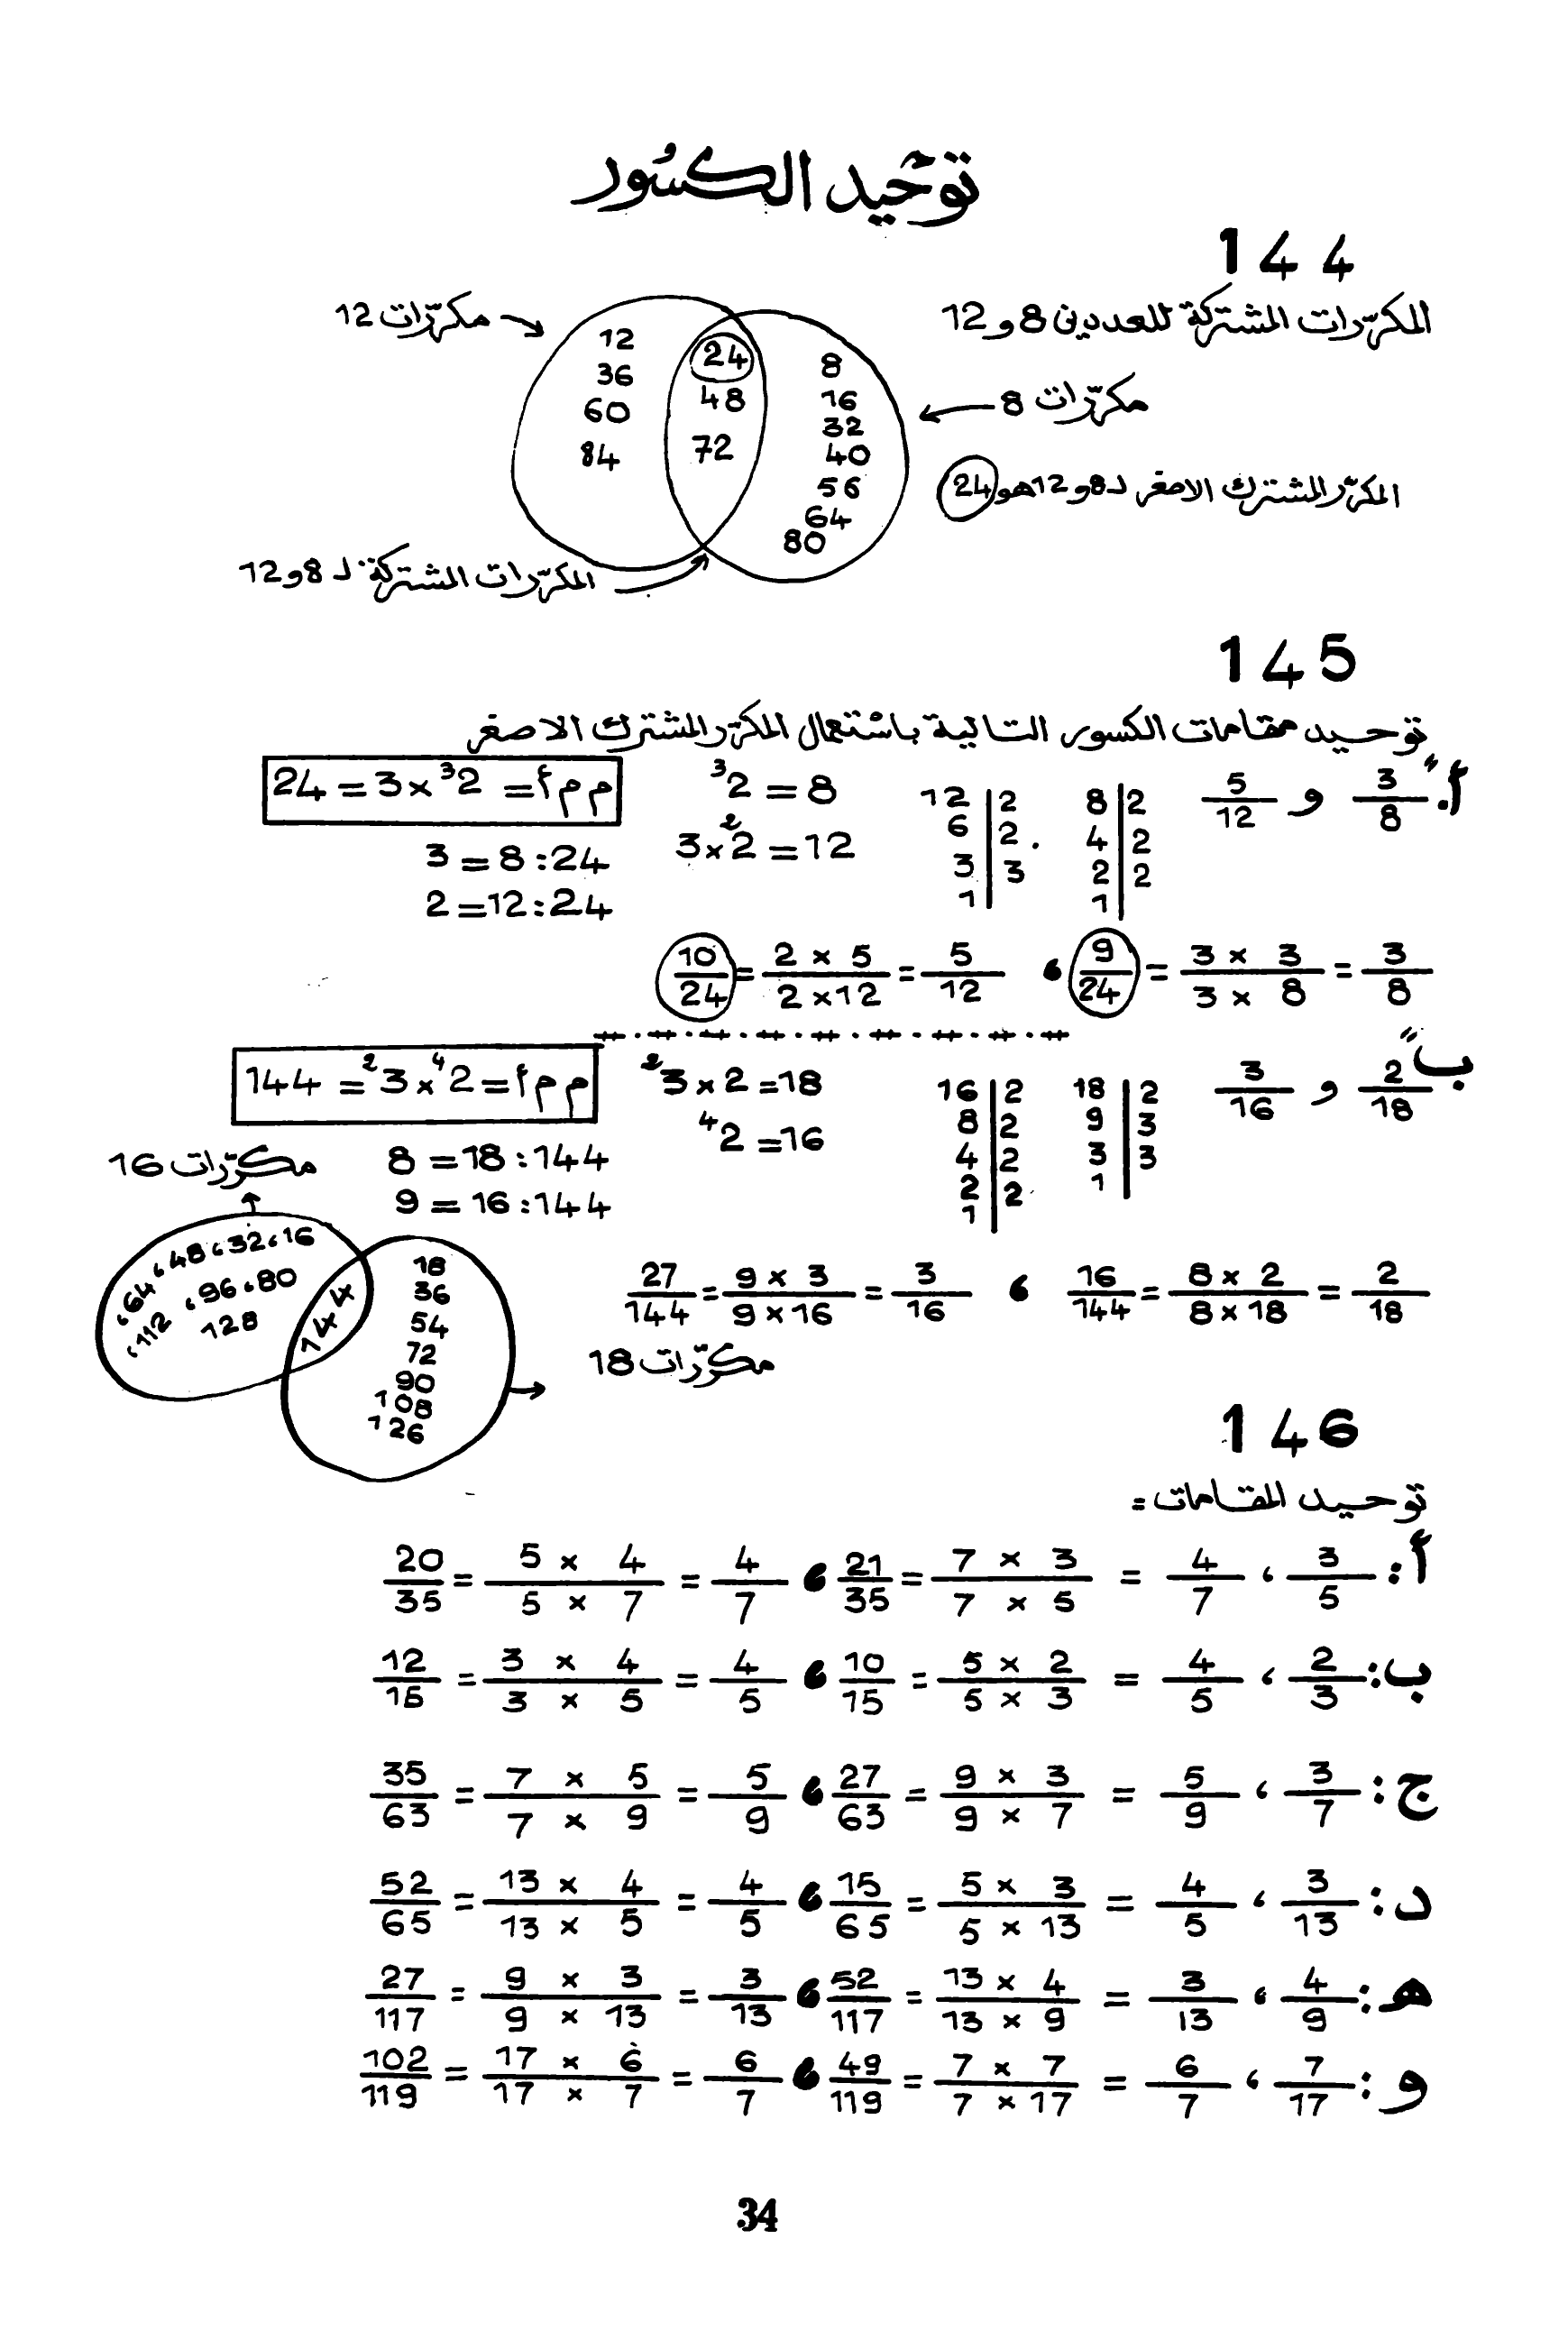 توحيد الكسور
144
المكرّرات المشتركة للعددين 8 و 12
مكرّرات 12
12
36
60
84
24
48
72
8
16
32
40
56
64
80
مكرّرات 8
المكرّر المشترك الاصغر لـ 8 و 12 هو 24
المكرّرات المشتركة لـ 8 و 12
145
توحيد مقامات الكسور التالية باستعمال المكرّر المشترك الاصغر
أ. 3/8 و 5/12
8 | 2
4 | 2
2 | 2
1
12 | 2
6 | 2
3 | 3
1
8 = 2³
12 = 2² × 3
م م أ = 2³ × 3 = 24
24 : 8 = 3
24 : 12 = 2
3/8 = (3 × 3)/(8 × 3) = 9/24 ، 5/12 = (5 × 2)/(12 × 2) = 10/24
ب 2/18 و 3/16
18 | 2
9 | 3
3 | 3
1
16 | 2
8 | 2
4 | 2
2 | 2
1
18 = 2 × 3²
16 = 2⁴
م م أ = 2⁴ × 3² = 144
144 : 18 = 8
144 : 16 = 9
مكرّرات 16
16، 32، 48، 64،
80، 96، 112،
128
144
18
36
54
72
90
108
126
مكرّرات 18
2/18 = (2 × 8)/(18 × 8) = 16/144 ، 3/16 = (3 × 9)/(16 × 9) = 27/144
146
توحيد المقامات =
أ : 3/5 ، 4/7 = (3 × 7)/(5 × 7) = 21/35 ، 4/7 = (4 × 5)/(7 × 5) = 20/35
ب : 2/3 ، 4/5 = (2 × 5)/(3 × 5) = 10/15 ، 4/5 = (4 × 3)/(5 × 3) = 12/15
ج : 3/7 ، 5/9 = (3 × 9)/(7 × 9) = 27/63 ، 5/9 = (5 × 7)/(9 × 7) = 35/63
د : 3/13 ، 4/5 = (3 × 5)/(13 × 5) = 15/65 ، 4/5 = (4 × 13)/(5 × 13) = 52/65
هـ : 4/9 ، 3/13 = (4 × 13)/(9 × 13) = 52/117 ، 3/13 = (3 × 9)/(13 × 9) = 27/117
و : 7/17 ، 6/7 = (7 × 7)/(17 × 7) = 49/119 ، 6/7 = (6 × 17)/(7 × 17) = 102/119
34